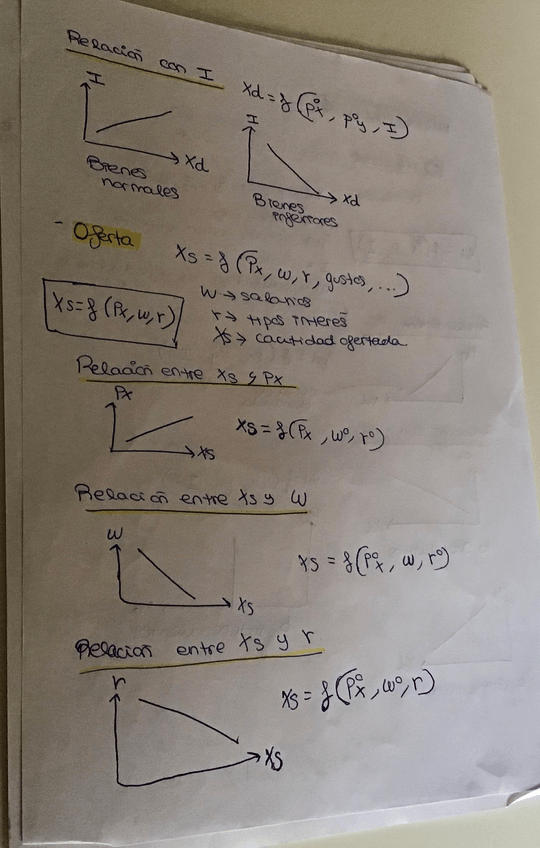 Relación con I
I
Xd = f (P°x, P°y, I)
Xd
Bienes
normales
I
Xd
Bienes
inferiores
- Oferta
Xs = f (Px, w, r, gustos, ...)
Xs = f (Px, w, r)
w → salarios
r → tipos interés
Xs → cantidad ofertada
Relación entre Xs y Px
Px
Xs
Xs = f (Px, w°, r°)
Relación entre Xs y W
w
Xs
Xs = f (P°x, w, r°)
Relación entre Xs y r
r
Xs
Xs = f (P°x, w°, r)